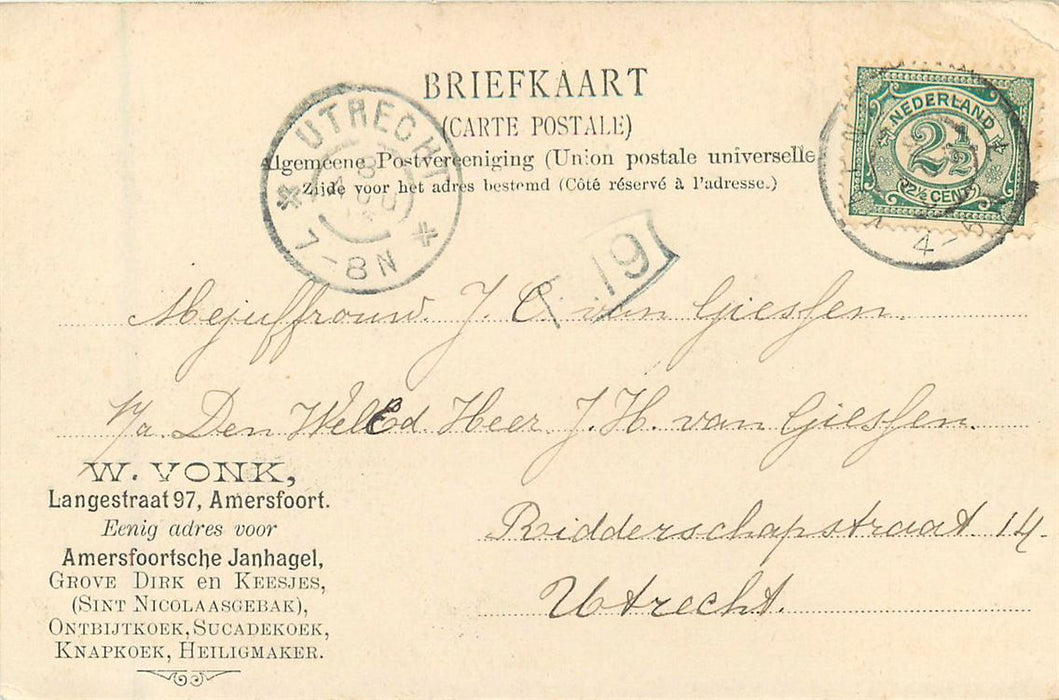 BRIEFKAART
(CARTE POSTALE)
Algemeene Postvereeniging (Union postale universelle
Zijde voor het adres bestemd (Côté réservé à l'adresse.)
UTRECHT
7-8N
NEDERLAND
2½
2½ CENT
4-5
19
Mejuffrouw. J. C. van Giessen.
p/a. Den WelEd Heer J. H. van Giessen.
Ridderschapstraat 14.
Utrecht.
W. VONK,
Langestraat 97, Amersfoort.
Eenig adres voor
Amersfoortsche Janhagel,
GROVE DIRK en KEESJES,
(SINT NICOLAASGEBAK),
ONTBIJTKOEK, SUCADEKOEK,
KNAPKOEK, HEILIGMAKER.